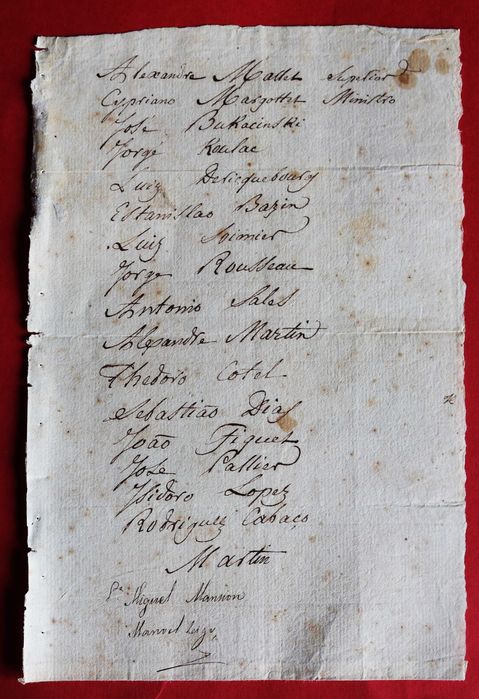 Alexandre Mallet Superior
Cypriano Margottet Ministro
José Bukacinski
Jorge Koulac
Luiz Dericquebourg
Estanislao Bazin
Luiz Simier
Jorge Rousseau
Antonio Sales
Alexandre Martin
Thedoro Cotel
Sebastião Dias
João Fiquet
José Pallier
Isidoro Lopez
Rodriguez Cabaço
Martin
Pe Miguel Mansion
Manoel